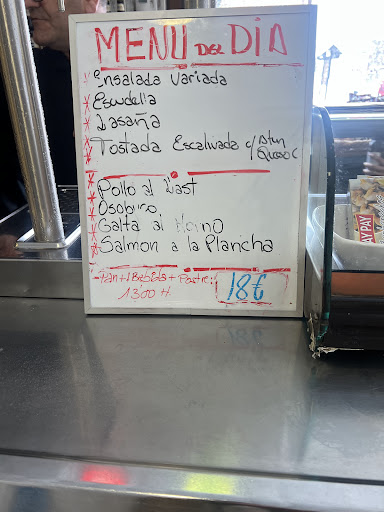 MENU DEL DIA
Ensalada Variada
Escudella
Lasaña
Tostada Escalivada c/Atun
Queso C
Pollo al Last
Osobuco
Galta al Horno
Salmon a la Plancha
Pan + 1 Bebida + Postre:
18€
PAY PAY